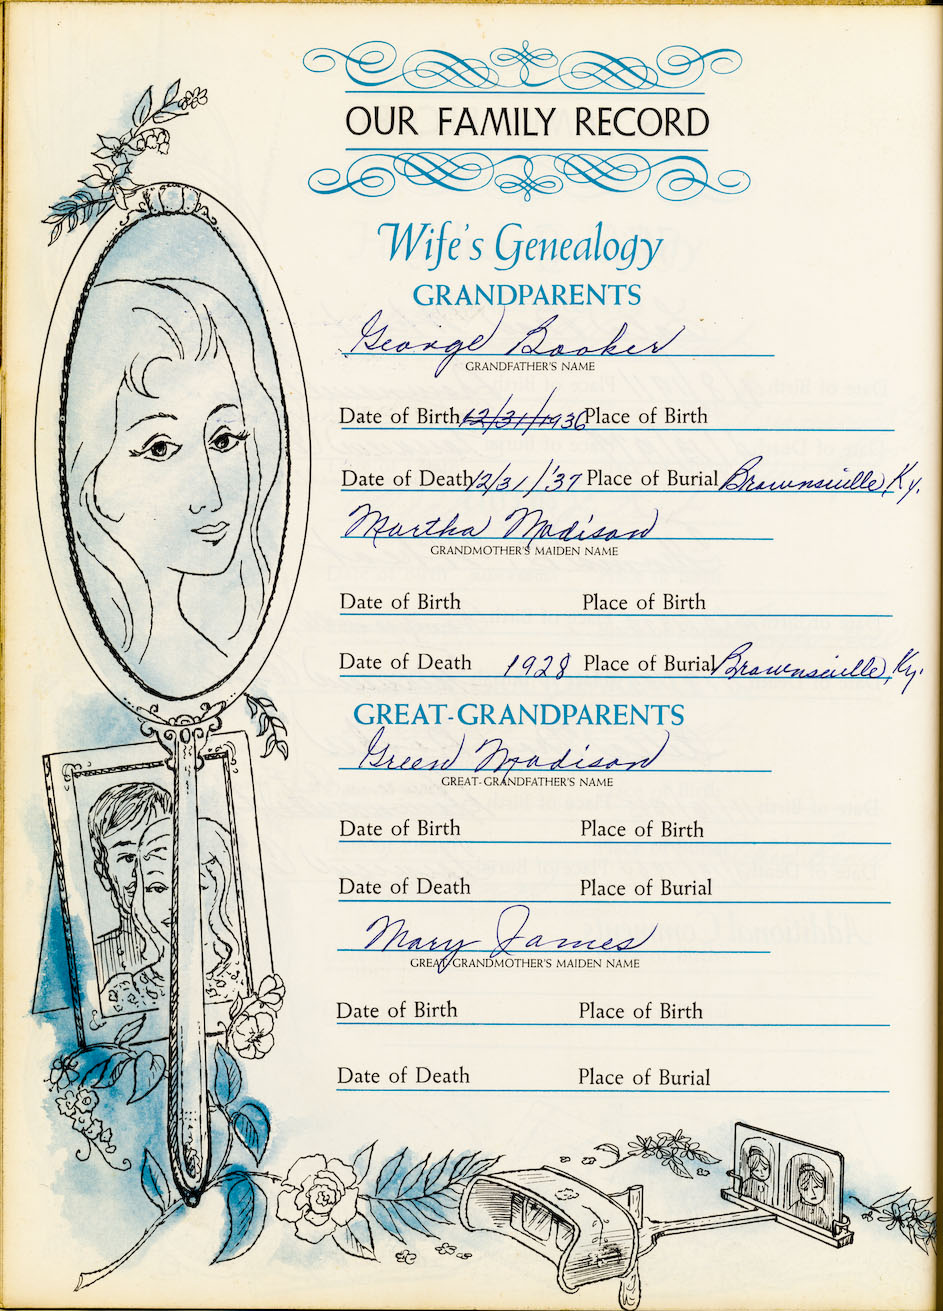 OUR FAMILY RECORD
Wife's Genealogy
GRANDPARENTS
George Booker
GRANDFATHER'S NAME
Date of Birth 12/31/1936 Place of Birth
Date of Death 12/31/'37 Place of Burial Brownsville, Ky.
Martha Madison
GRANDMOTHER'S MAIDEN NAME
Date of Birth Place of Birth
Date of Death 1928 Place of Burial Brownsville, Ky.
GREAT-GRANDPARENTS
Green Madison
GREAT-GRANDFATHER'S NAME
Date of Birth Place of Birth
Date of Death Place of Burial
Mary James
GREAT-GRANDMOTHER'S MAIDEN NAME
Date of Birth Place of Birth
Date of Death Place of Burial